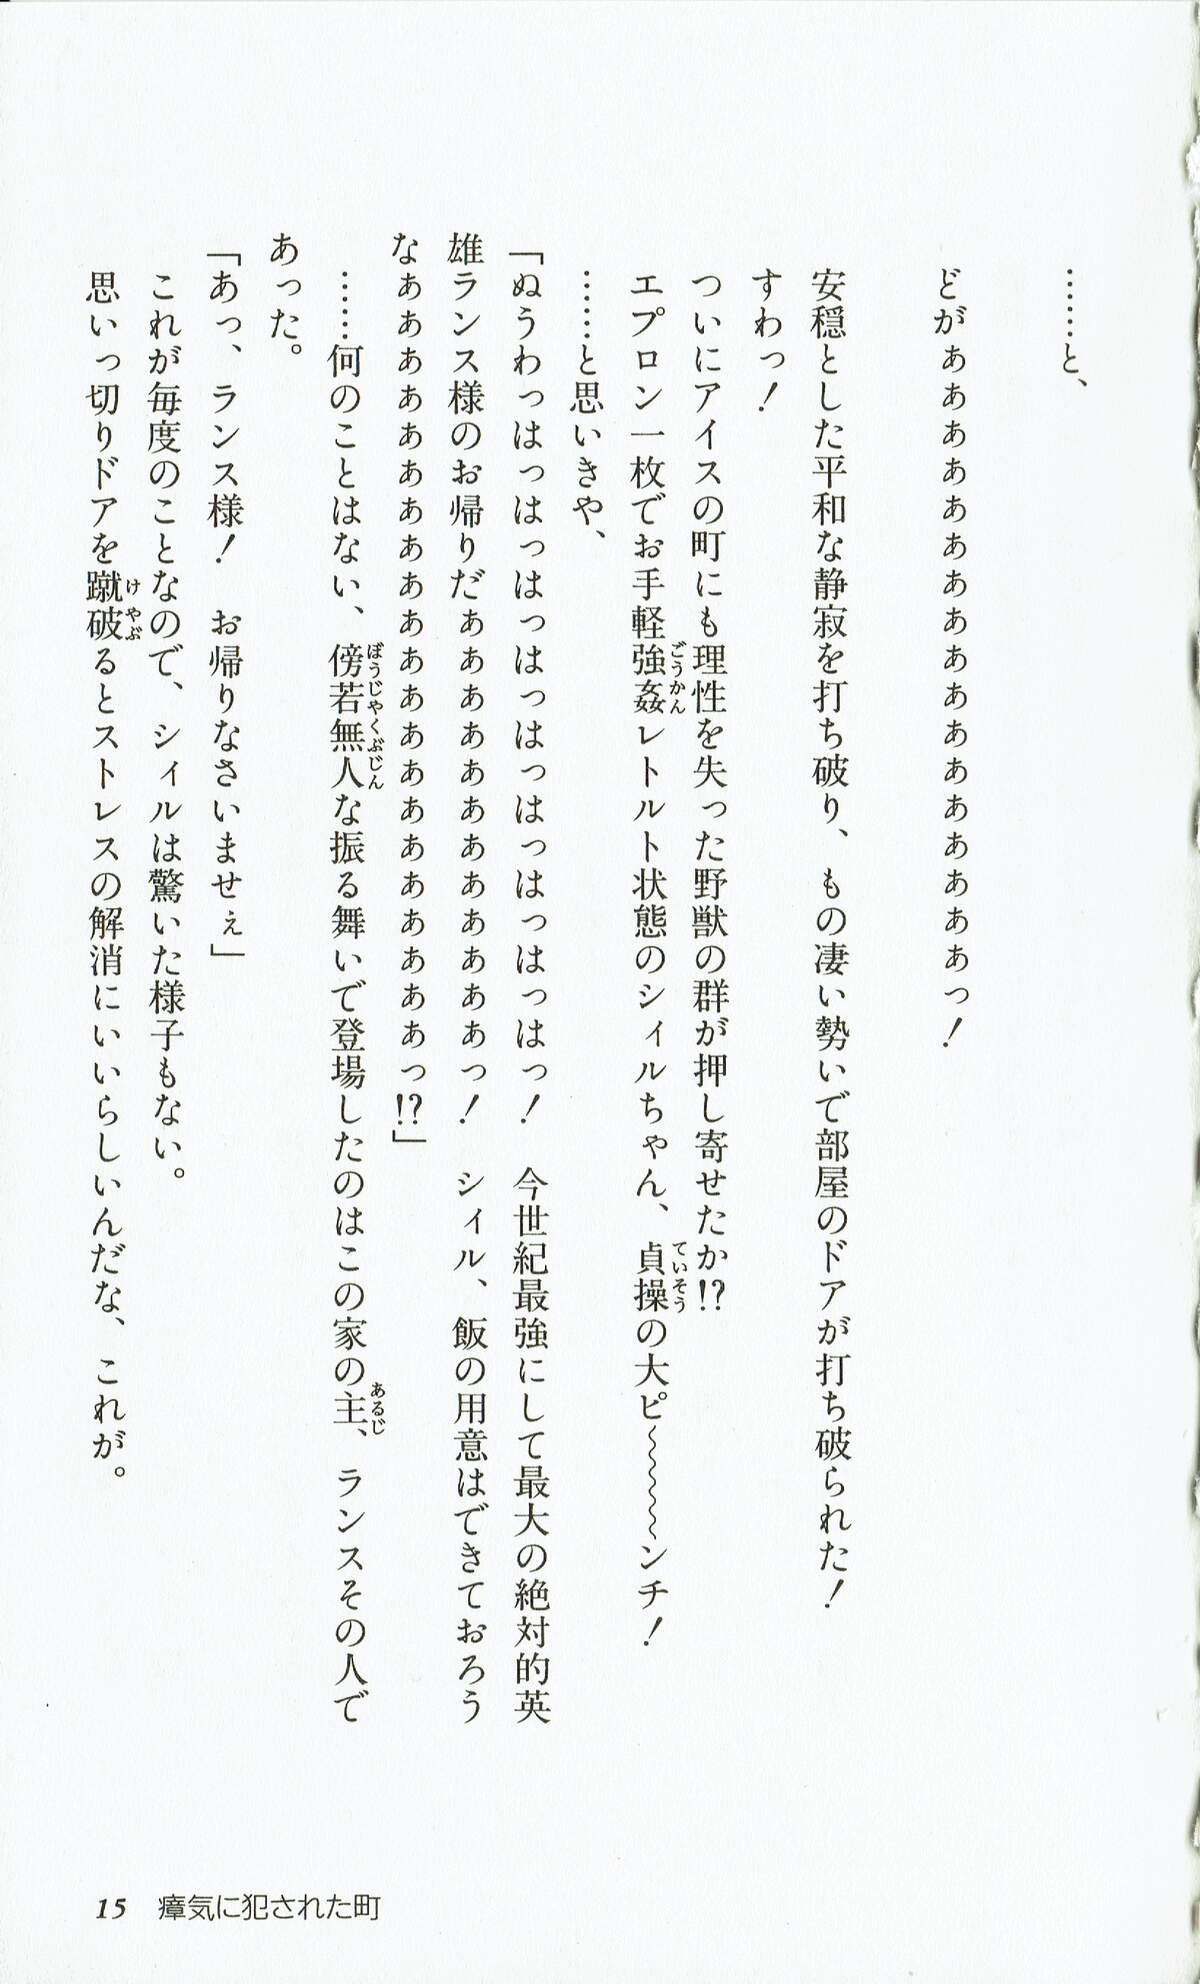 ……と、
どがぁぁぁぁぁぁぁぁぁぁぁぁぁぁぁぁぁっ！
安穏とした平和な静寂を打ち破り、もの凄い勢いで部屋のドアが打ち破られた！
すわっ！
ついにアイスの町にも理性を失った野獣の群が押し寄せたか!?
エプロン一枚でお手軽強姦レトルト状態のシィルちゃん、貞操の大ピ〜〜〜〜ンチ！
……と思いきや、
「ぬうわっはっはっはっはっはっはっはっはっはっ！　今世紀最強にして最大の絶対的英
雄ランス様のお帰りだぁぁぁぁぁぁぁぁぁぁぁぁっ！　シィル、飯の用意はできておろう
なぁぁぁぁぁぁぁぁぁぁぁぁぁぁぁぁぁぁぁぁぁっ!?」
……何のことはない、傍若無人な振る舞いで登場したのはこの家の主、ランスその人で
あった。
「あっ、ランス様！　お帰りなさいませぇ」
これが毎度のことなので、シィルは驚いた様子もない。
思いっ切りドアを蹴破るとストレスの解消にいいらしいんだな、これが。
15　瘴気に犯された町